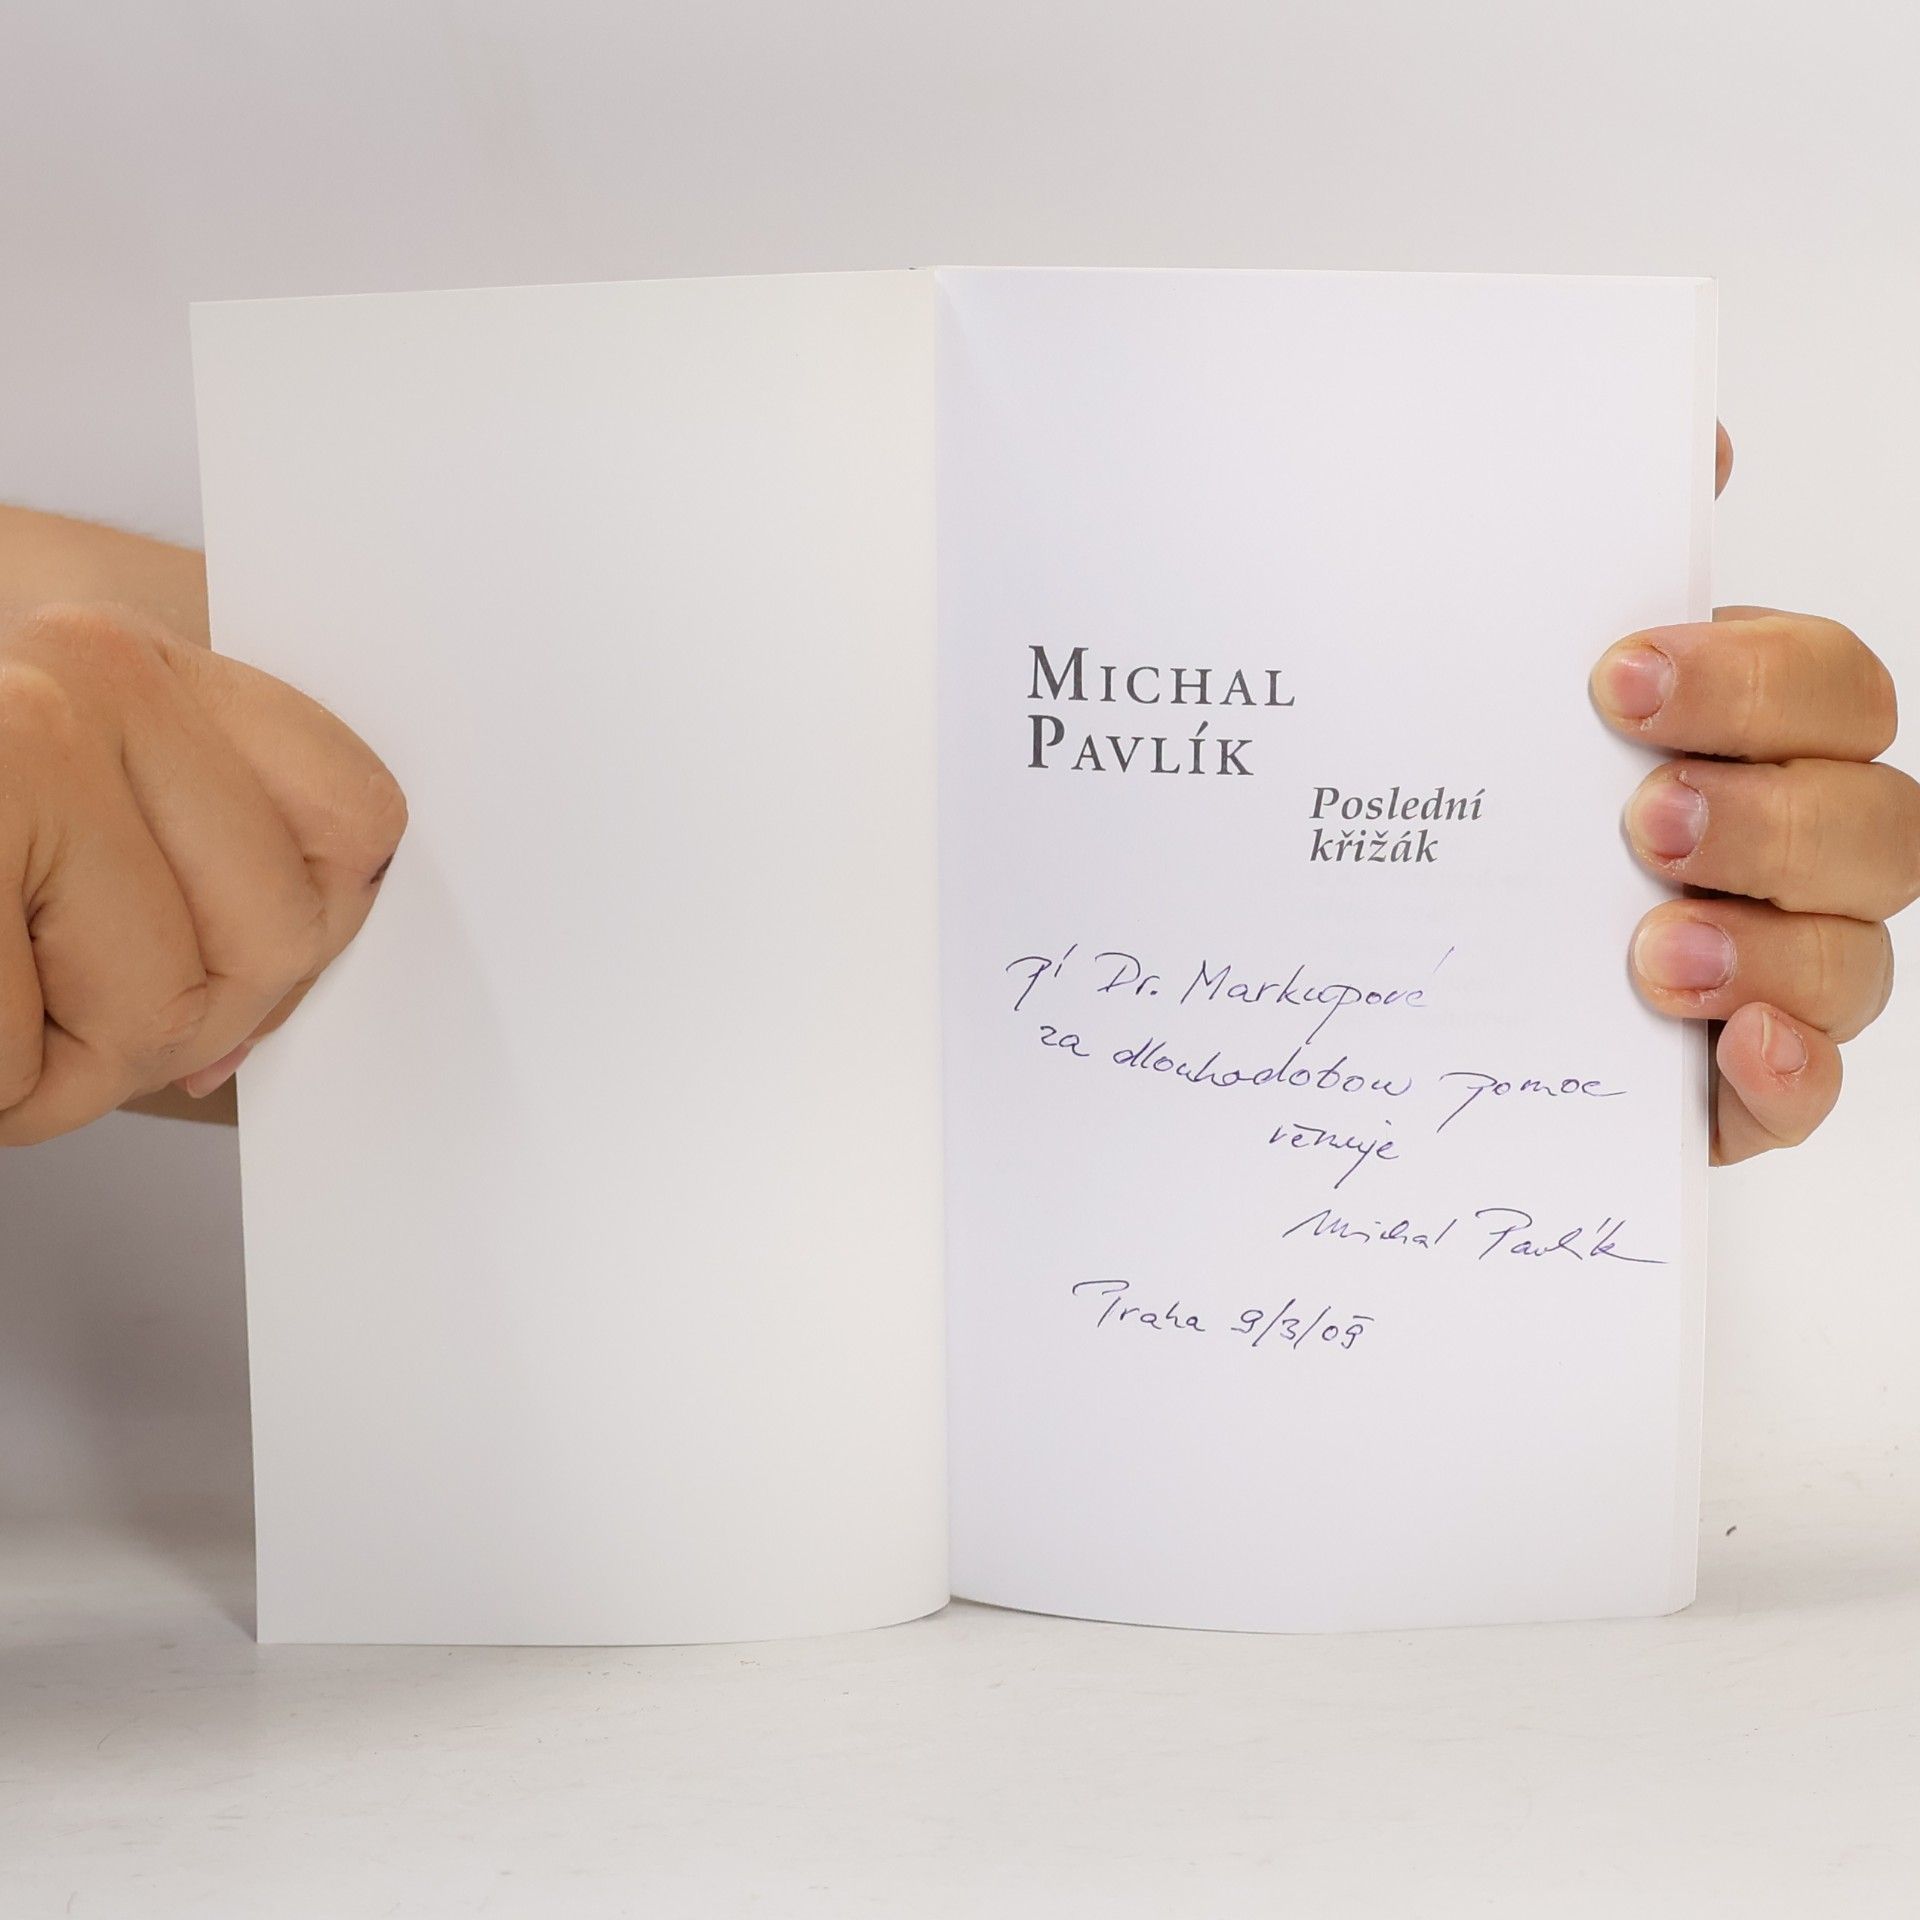 MICHAL
PAVLÍK
Poslední
křižák
pí Dr. Markupové
za dlouhodobou pomoc
věnuje
Michal Pavlík
Praha 9/3/09